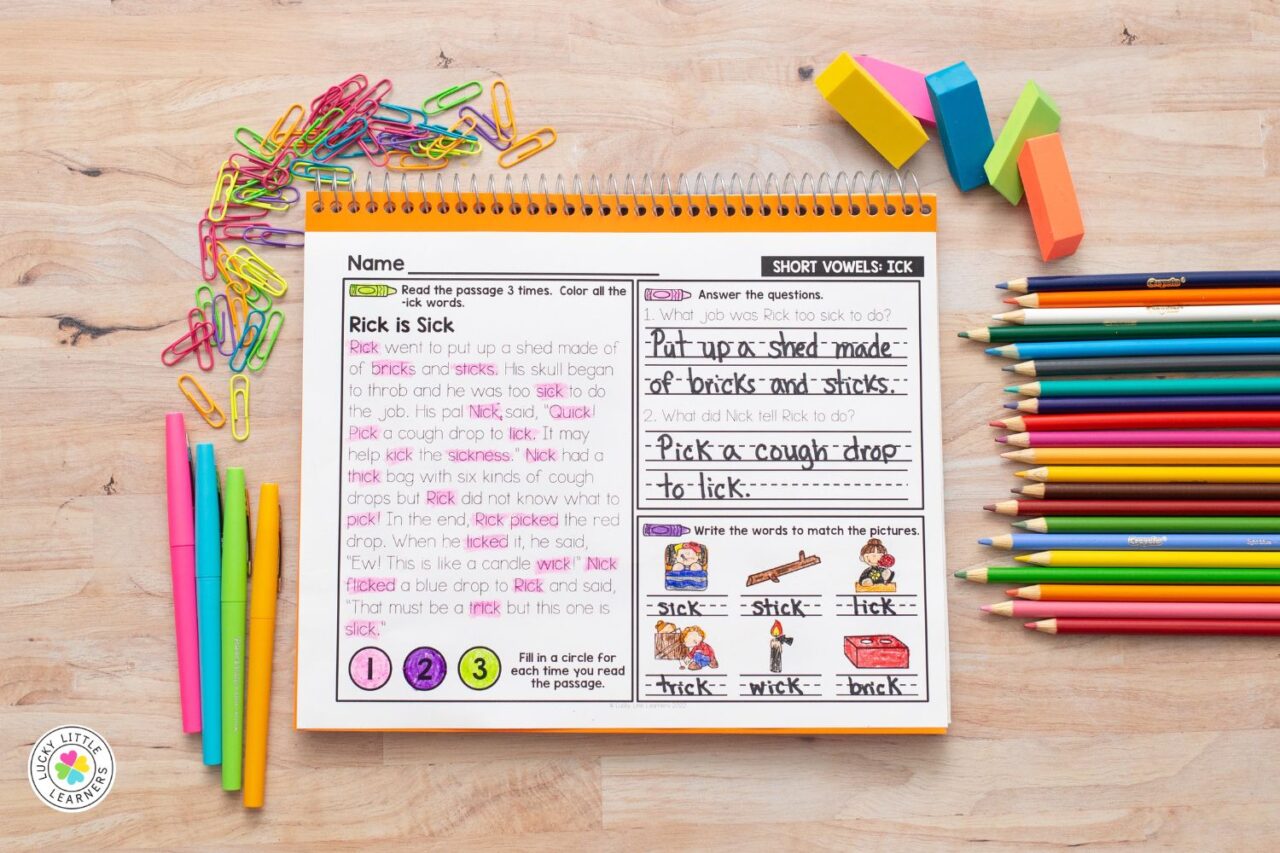 Name
SHORT VOWELS: ICK
Read the passage 3 times. Color all the
-ick words.
Rick is Sick
Rick went to put up a shed made of
of bricks and sticks. His skull began
to throb and he was too sick to do
the job. His pal Nick, said, "Quick!
Pick a cough drop to lick. It may
help kick the sickness." Nick had a
thick bag with six kinds of cough
drops but Rick did not know what to
pick! In the end, Rick picked the red
drop. When he licked it, he said,
"Ew! This is like a candle wick!" Nick
flicked a blue drop to Rick and said,
"That must be a trick but this one is
slick."
1 2 3
Fill in a circle for
each time you read
the passage.
Answer the questions.
1. What job was Rick too sick to do?
Put up a shed made
of bricks and sticks.
2. What did Nick tell Rick to do?
Pick a cough drop
to lick.
Write the words to match the pictures.
sick stick lick
trick wick brick
© Lucky Little Learners 2022
Crayola
Crayola
light blue
LUCKY LITTLE
LEARNERS